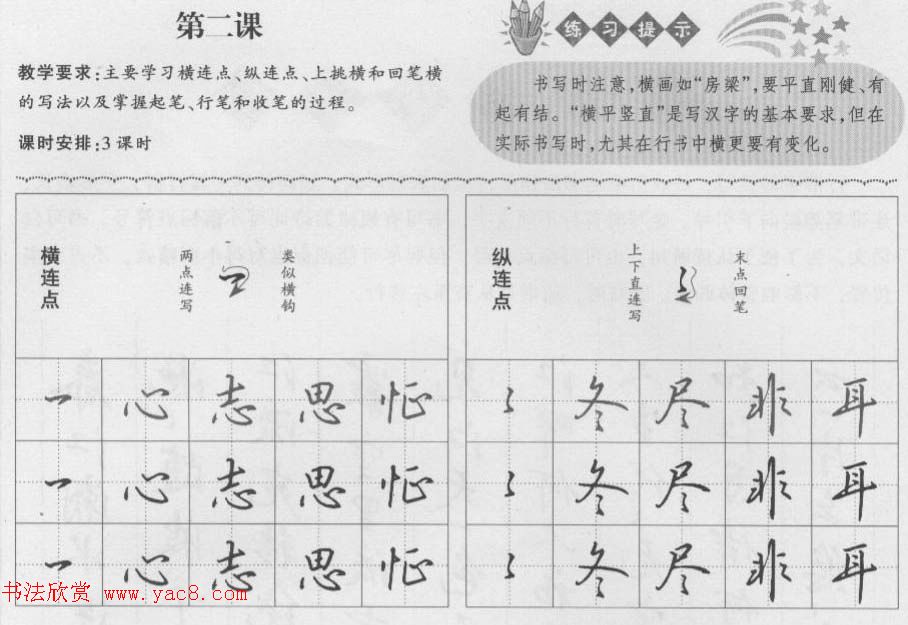 第二课
教学要求:主要学习横连点、纵连点、上挑横和回笔横
的写法以及掌握起笔、行笔和收笔的过程。
课时安排:3课时
练习提示
书写时注意,横画如“房梁”,要平直刚健、有
起有结。“横平竖直”是写汉字的基本要求,但在
实际书写时,尤其在行书中横更要有变化。
横连点
两点连写
类似横钩
心 志 思 怔
心 志 思 怔
心 志 思 怔
纵连点
上下直连写
点回笔
冬 尽 非 耳
冬 尽 非 耳
冬 尽 非 耳
书法欣赏 www.yac8.com